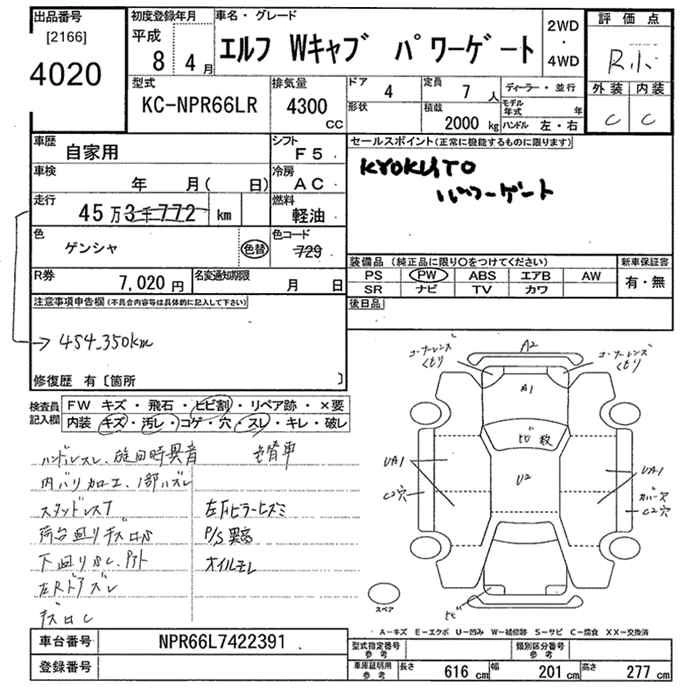 出品番号
[2166]
4020
初度登録年月
平成
8 4月
車名・グレード
エルフ Wキャブ パワーゲート
2WD
・
4WD
評価点
R小
外装 内装
C C
型式
KC-NPR66LR
排気量
4300
CC
ドア
4
定員
7人
ディーラー・並行
形状
積載
2000kg
モデル年式 年
ハンドル 左・右
車歴
自家用
シフト
F5
車検
年 月( 日)
冷房
AC
走行
45万3千772 km
燃料
軽油
色
ゲンシャ
色替
色コード
729
R券
7,020円
名変通知期限
月 日
セールスポイント(正常に機能するものに限ります)
KYOKUTO
パワーゲート
装備品(純正品に限り○をつけてください)
新車保証書
PS PW ABS エアB AW
SR ナビ TV カワ
有・無
後日品
注意事項申告欄(不具合内容等は具体的に記入して下さい)
→ 454,350km
修復歴 有[箇所 ]
検査員記入欄
FW キズ・飛石・ヒビ割・リペア跡・×要
内装 キズ・汚レ・コゲ・穴・スレ・キレ・破レ
ハンドルスレ、旋回時異音
内バリカロエ、1部ハズレ
スタッドレスT
左Fピラーヒズミ
P/S異音
オイルモレ
左Rドアズレ
コーナーレンズ
くもり
A2
コーナーレンズ
くもり
A1
UA1
U2
UA1
C2穴
カバー穴
C2穴
スペア
A－キズ E－エクボ U－凹み W－補修跡 S－サビ C－腐食 XX－交換済
車台番号
NPR66L7422391
登録番号
型式指定番号
参考
類別区分番号
参考
車庫証明用
参考
長さ 616cm 幅 201cm 高さ 277cm